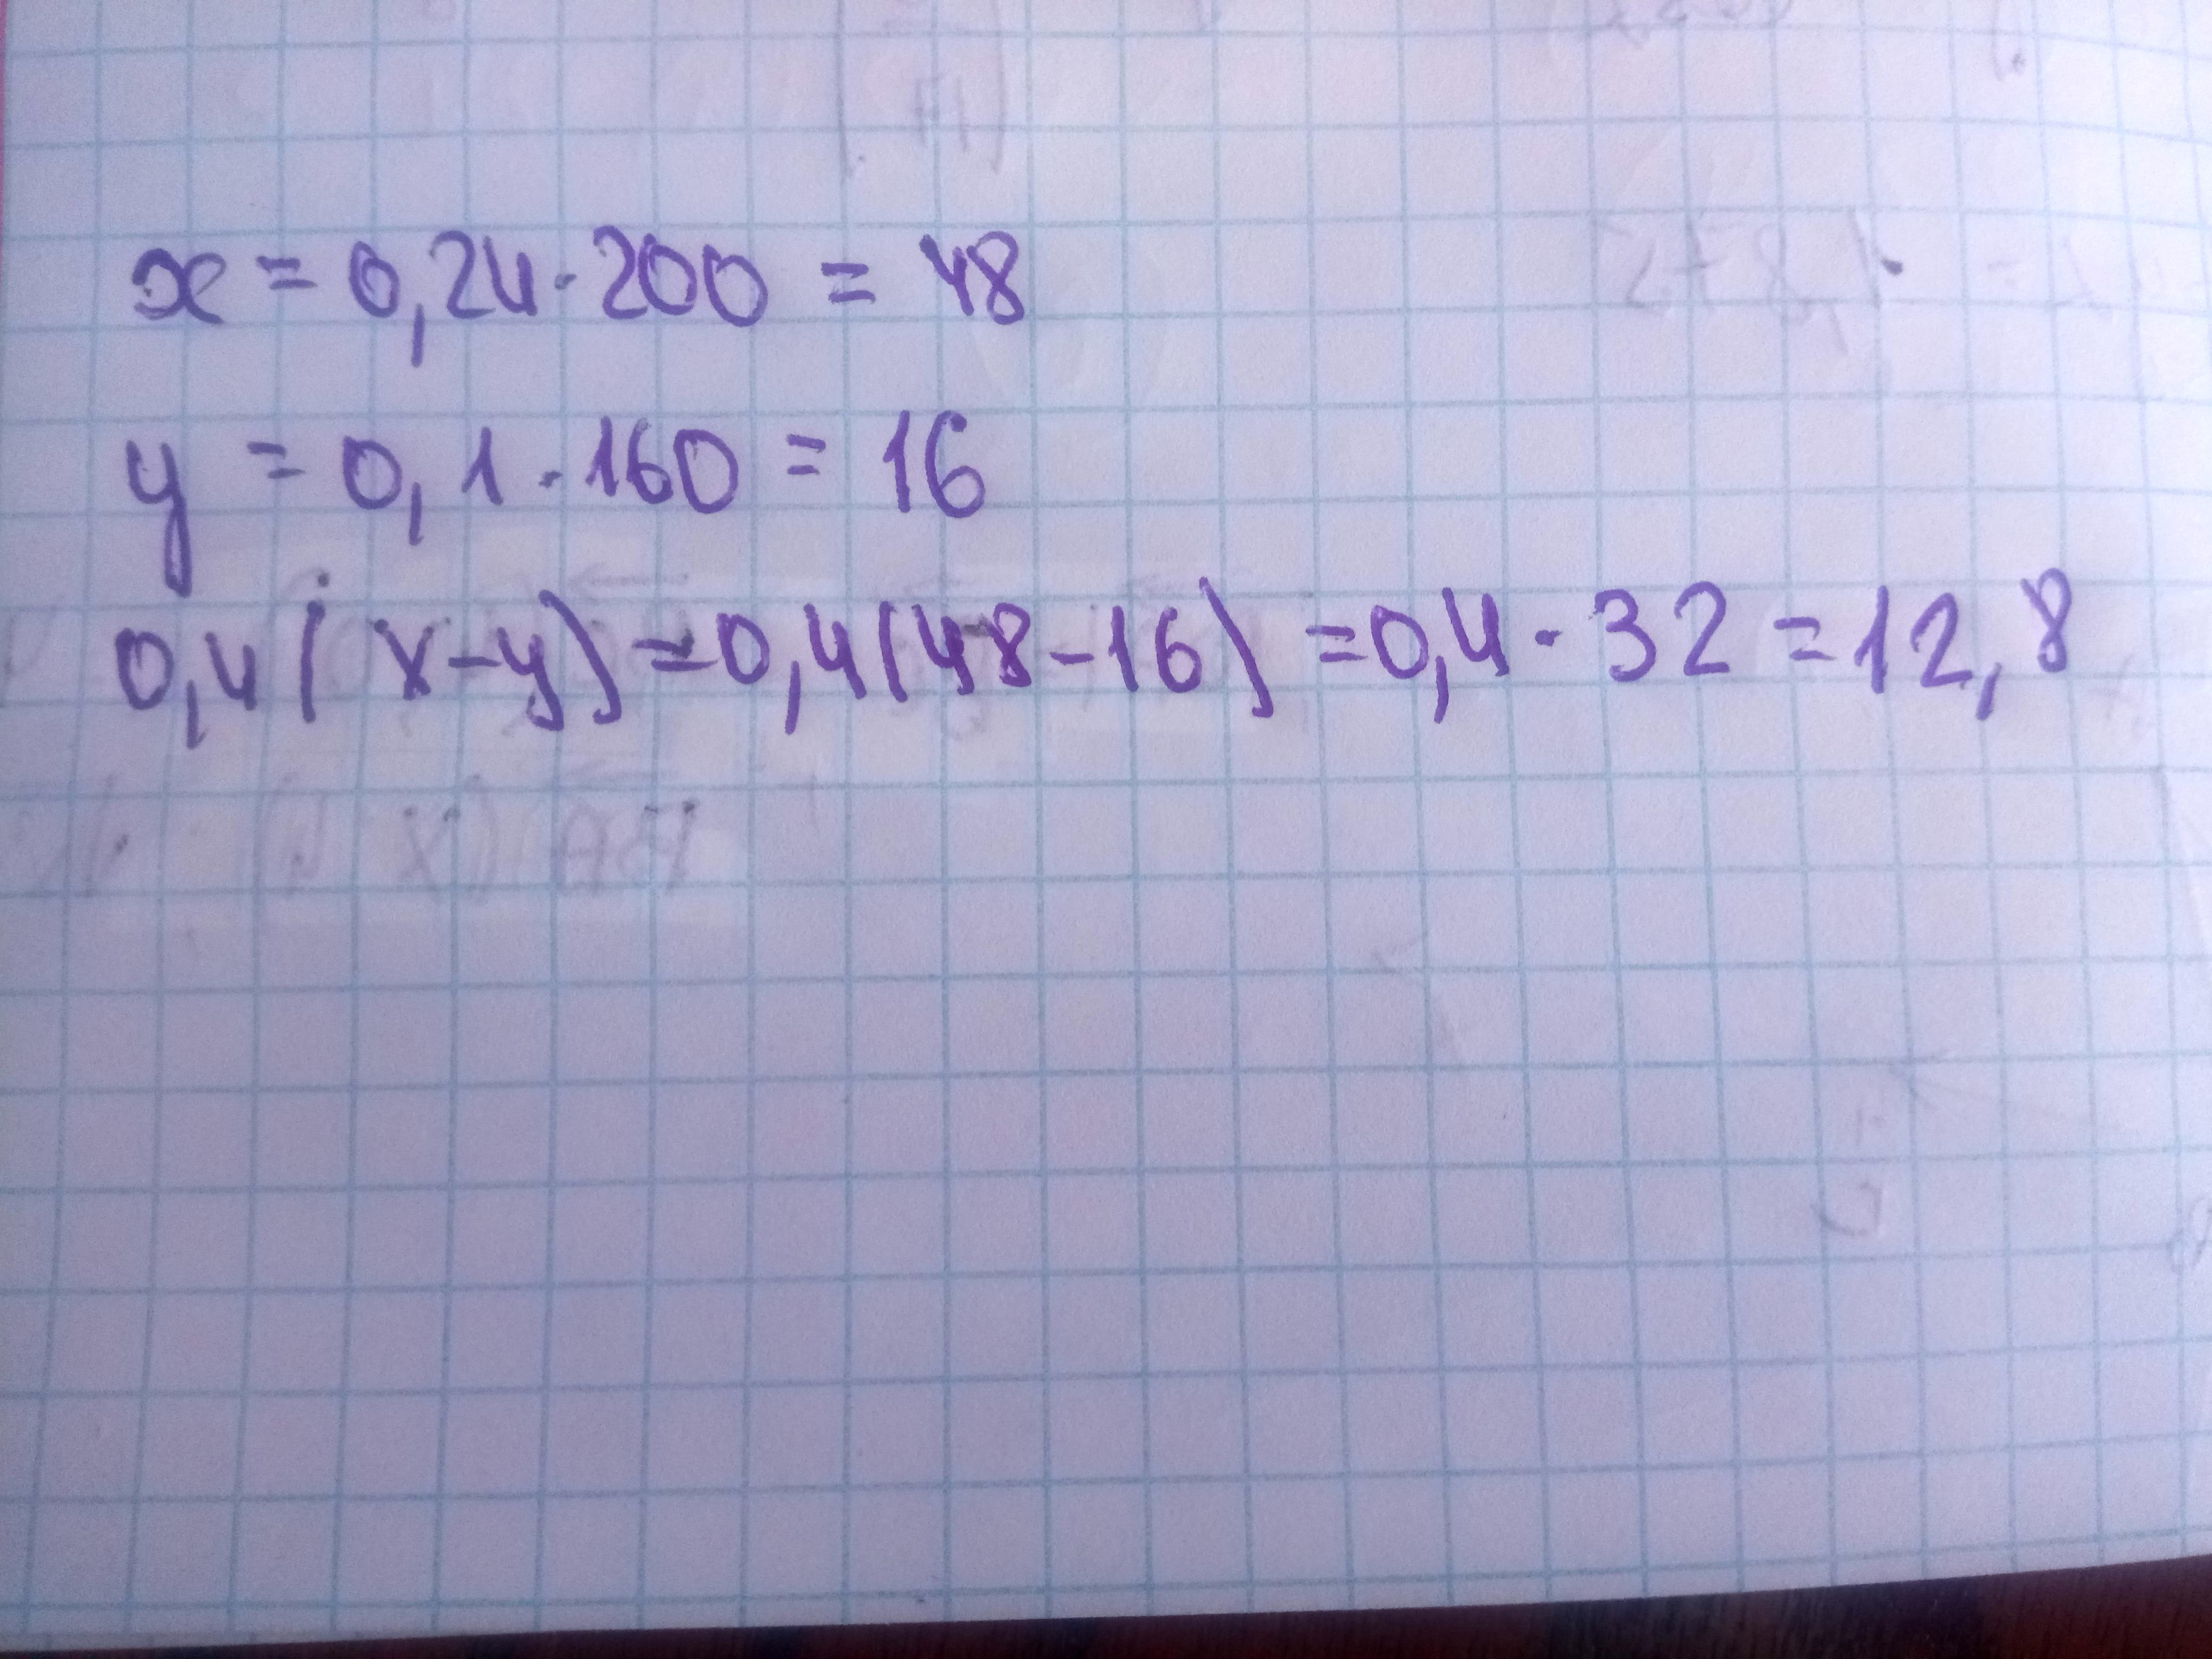 x = 0,24 · 200 = 48
y = 0,1 · 160 = 16
0,4(x-y)=0,4(48-16)=0,4·32=12,8